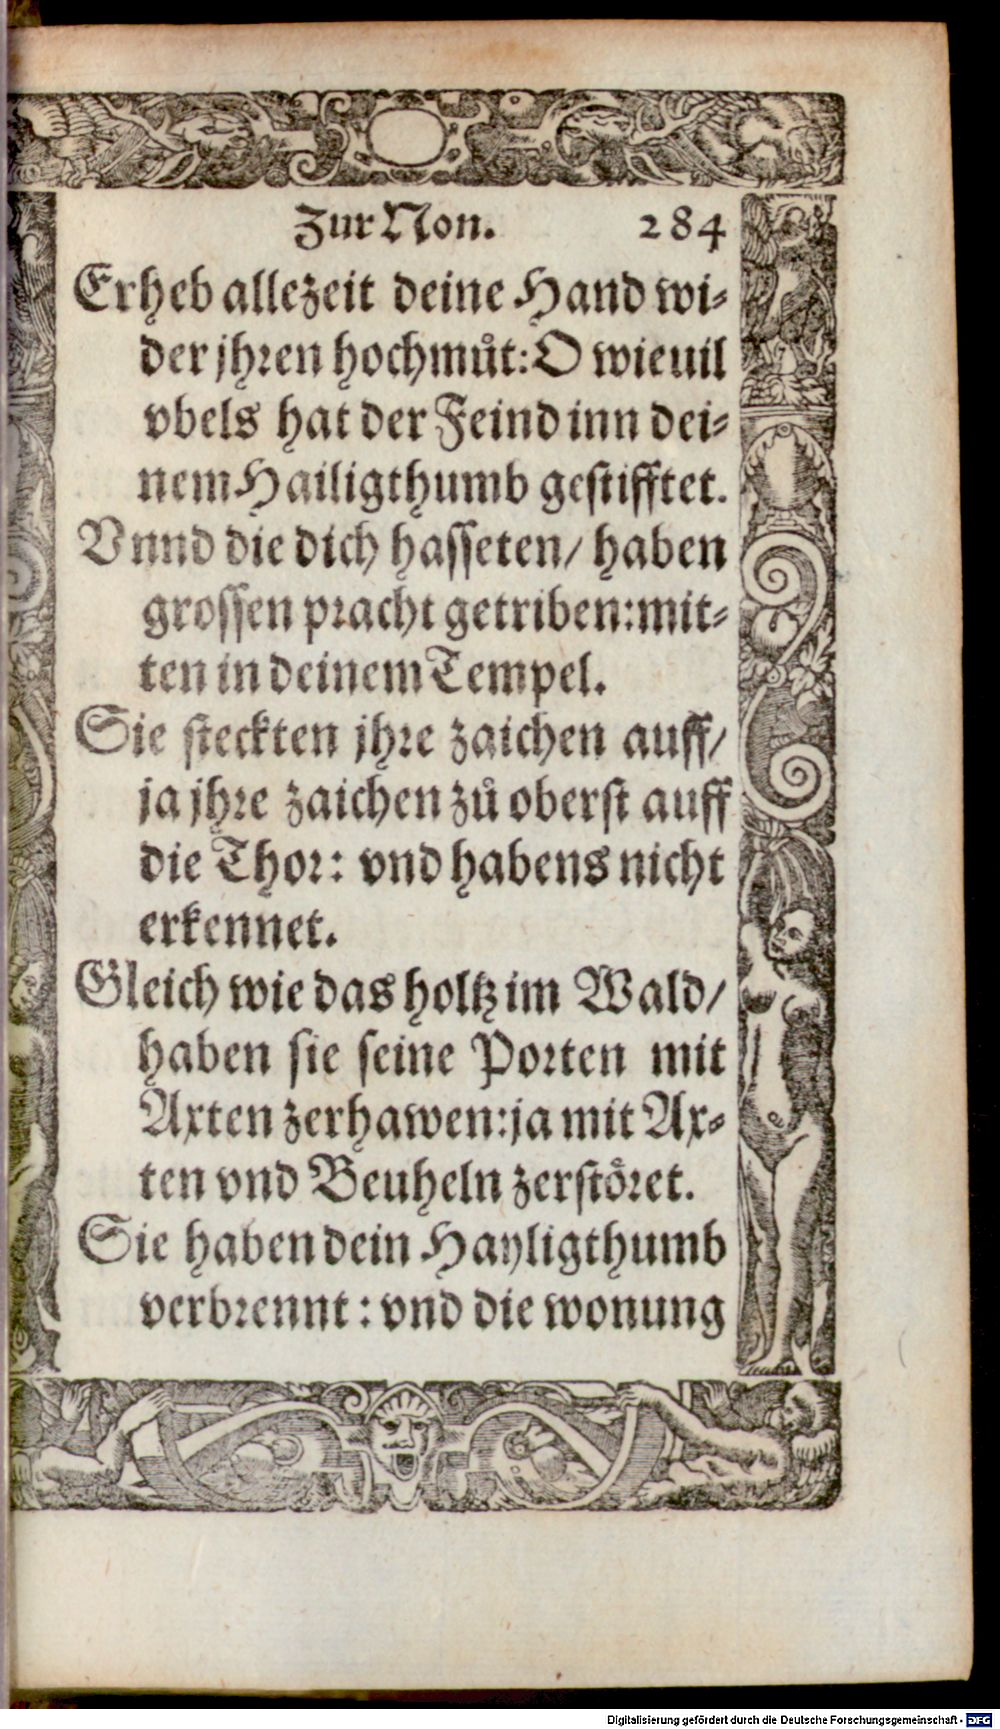 Zur Non. 284
Erheb allezeit deine Hand wi-
der jhren hochmůt: O wieuil
vbels hat der Feind inn dei-
nem Hailigthumb gestifftet.
Vnnd die dich hasseten/ haben
grossen pracht getriben: mit-
ten in deinem Tempel.
Sie steckten jhre zaichen auff/
ja jhre zaichen zů oberst auff
die Thor: vnd habens nicht
erkennet.
Gleich wie das holtz im Wald/
haben sie seine Porten mit
Axten zerhawen: ja mit Ax-
ten vnd Beuheln zerstöret.
Sie haben dein Hayligthumb
verbrennt: vnd die wonung
Digitalisierung gefördert durch die Deutsche Forschungsgemeinschaft - DFG